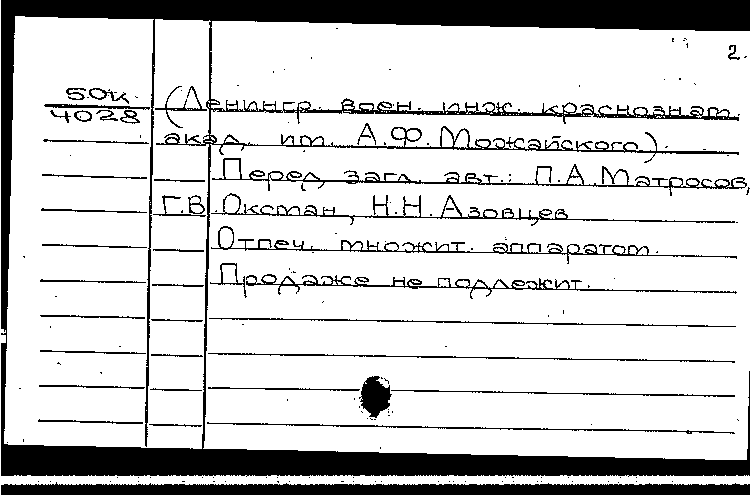 2.
50к (Ленингр. воен. инж. краснознам.
4028
акад. им. А.Ф. Можайского).
Перед загл. авт.: П.А. Матросов,
Г.В. Окстан, Н.Н. Азовцев
Отпеч. множит. аппаратом.
Продаже не подлежит.